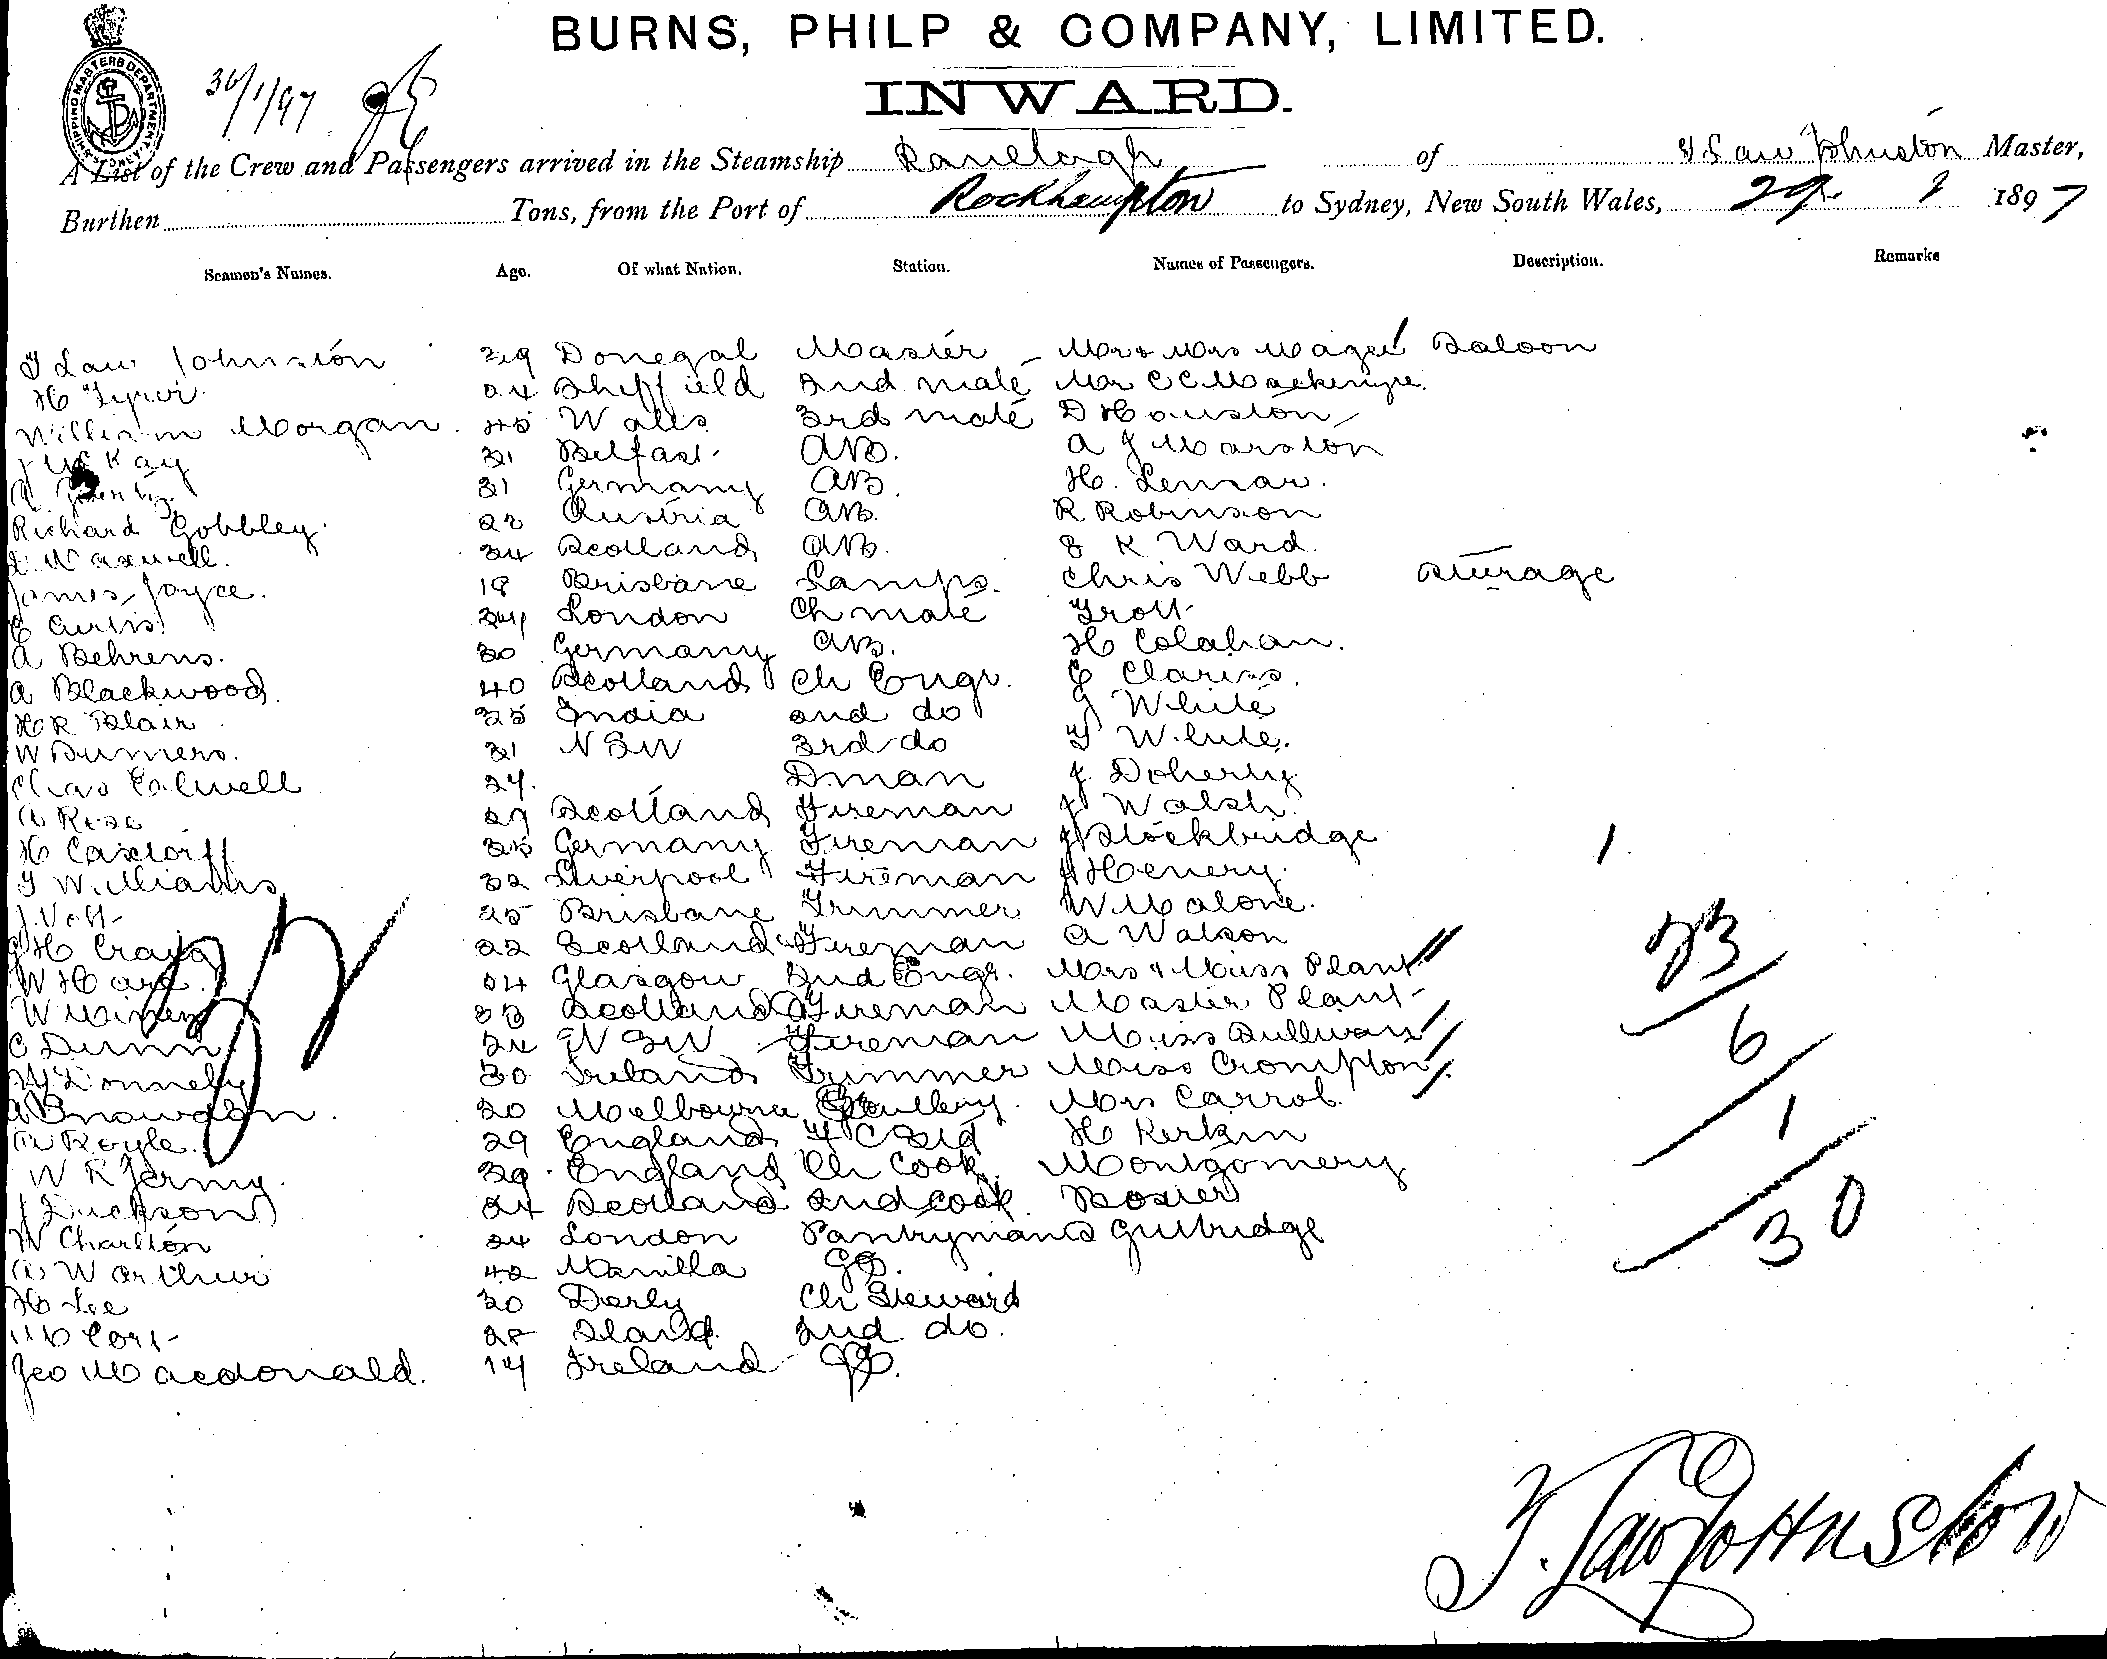 BURNS, PHILP & COMPANY, LIMITED.
INWARD.
SHIPPING MASTERS DEPARTMENT
30/1/97
A List of the Crew and Passengers arrived in the Steamship Ranelagh of T Law Johnston Master,
Burthen Tons, from the Port of Rockhampton to Sydney, New South Wales, 29 1 1897
Seamen's Names. Age. Of what Nation. Station. Names of Passengers. Description. Remarks
T Law Johnston 29 Donegal Master Mr & Mrs Saloon
H 24 Sheffield 2nd mate Mr C C Mackenzie.
William Morgan 45 Wales 3rd mate D Houston
J McKay 31 Belfast. AB. A J Marston
31 Germany AB. H.
Richard Gobbley. 22 Austria AB. R Robinson
Maxwell. 34 Scotland AB. K Ward.
James Joyce. 18 Brisbane Lamps. Chris Webb Sturage
Curtis London Ch mate Trott
A Behrens. 30 Germany AB. H Colahan.
A Blackwood. 40 Scotland Ch Engr.
H R Blair 25 India 2nd do G White
W Sumers. 31 N S W 3rd do T White.
Chas Calwell 24. Dman J Doherty
A Rose 29 Scotland Fireman J Walsh
H Castorff Germany Fireman J Stockbridge 1
T Williams 32 Liverpool Fireman H Henery.
J. Voll 25 Brisbane Trimmer W Malone. 23
J H Craig 22 Scotland Fireman A Watson
W Hare. 24 Glasgow 2nd Engr. Mrs & Miss Plant
W Scotland Fireman Master Plant 6
C Dunn. 24 N S W Fireman Miss Sullivan
McDonnely 30 Ireland Trimmer Miss Crompton
A Snowdon. 20 Melbourne Mrs Carrol 1
A Royle. 29 England F C Std H Kerkin
W R Jermy. 39 England Ch Cook Montgomery
J Dickson 24 Scotland 2nd cook Rosier 30
W Charlton 24 London Pantryman
A W Arthur 42 Manilla GS.
H Lee 30 Derly Ch Steward
2nd do.
Geo Macdonald. Ireland GS.
97
T. Law Johnston